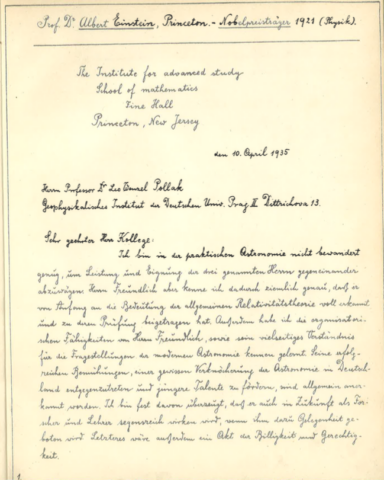 Prof. Dr Albert Einstein, Princeton. - Nobelpreisträger 1921 (Physik).
The Institute for advanced study
School of mathematics
Fine Hall
Princeton, New Jersey
den 10. April 1935
Herrn Professor Dr Leo Wenzel Pollak
Geophysikalisches Institut der Deutschen Univ. Prag II Dittrichova 13.
Sehr geehrter Herr Kollege:
Ich bin in der praktischen Astronomie nicht bewandert
genug, um Leistung und Eignung der drei genannten Herrn gegeneinander
abzuwägen. Herrn Freundlich aber kenne ich dadurch ziemlich genau, daß er
von Anfang an die Bedeutung der allgemeinen Relativitätstheorie voll erkannt
und zu deren Prüfung beigetragen hat. Außerdem habe ich die organisatori-
schen Fähigkeiten von Herrn Freundlich, sowie sein vielseitiges Verständnis
für die Fragestellungen der modernen Astronomie kennen gelernt. Seine erfolg-
reichen Bemühungen, einer gewissen Verknöcherung der Astronomie in Deutsch-
land entgegenzutreten und jüngere Talente zu fördern, sind allgemein aner-
kannt worden. Ich bin fest davon überzeugt, daß er auch in Zukunft als For-
scher und Lehrer segensreich wirken wird, wenn ihm dazu Gelegenheit ge-
boten wird. Letzteres wäre außerdem ein Akt der Billigkeit und Gerechtig-
keit.